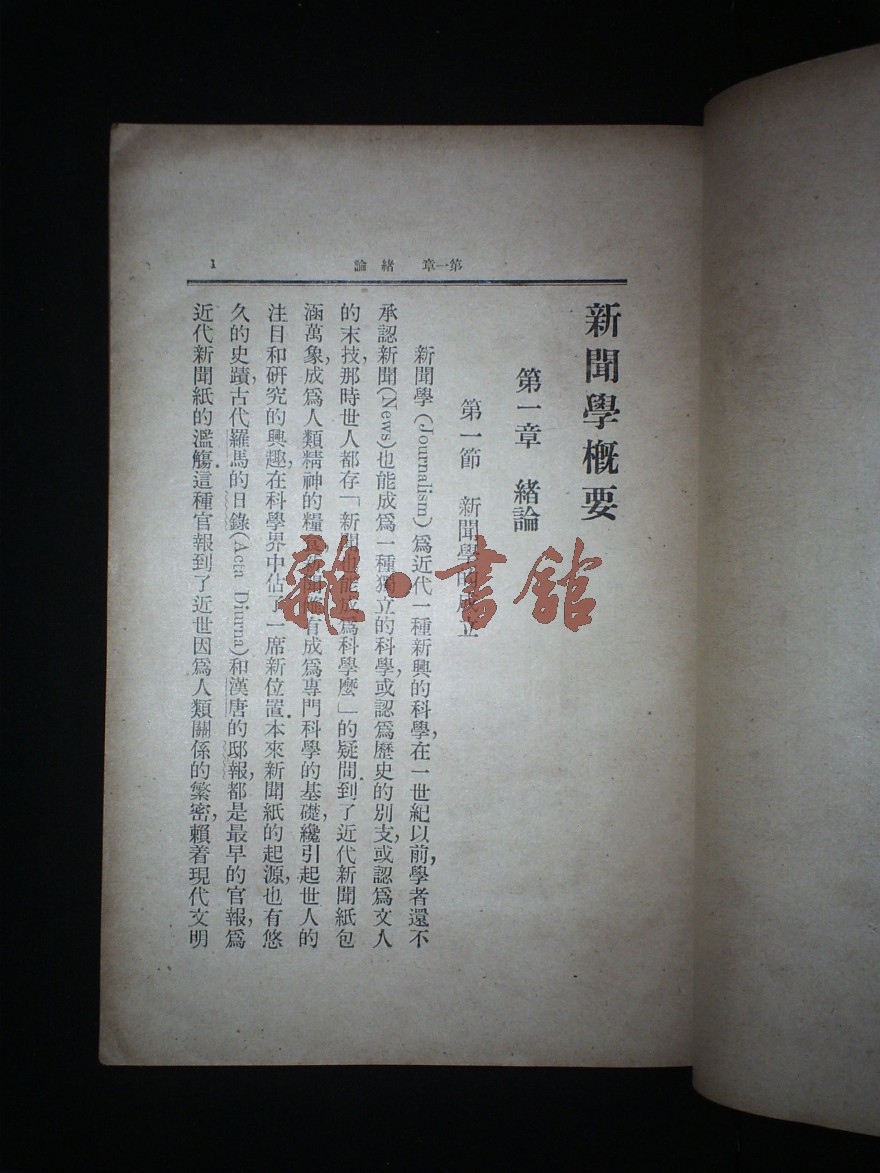 第一章 緒論 1
新聞學概要
第一章 緒論
第一節 新聞學的成立
新聞學(Journalism)爲近代一種新興的科學,在一世紀以前,學者還不
承認新聞(News)也能成爲一種獨立的科學,或認爲歷史的別支,或認爲文人
的末技,那時世人都存「新聞也能成爲科學麼」的疑問.到了近代新聞紙包
涵萬象,成爲人類精神的糧食,新聞有成爲專門科學的基礎,纔引起世人的
注目和研究的興趣,在科學界中佔了一席新位置.本來新聞紙的起源,也有悠
久的史蹟,古代羅馬的日錄(Acta Diurna)和漢唐的邸報,都是最早的官報,爲
近代新聞紙的濫觴.這種官報到了近世因爲人類關係的繁密,賴着現代文明
雜·書館